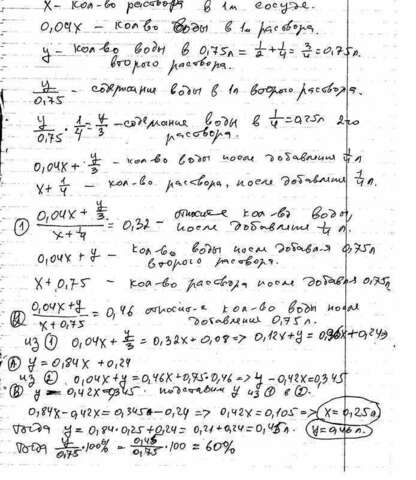 x - кол-во раствора в 1м сосуде.
0,04x - кол-во воды в 1м растворе.
y - кол-во воды в 0,75л = 1/2 + 1/4 = 3/4 = 0,75л.
второго раствора.
y/0,75 - содержание воды в 1л второго раствора.
y/0,75 · 1/4 = y/3 - содержание воды в 1/4 = 0,25л 2го
раствора.
0,04x + y/3 - кол-во воды после добавления 1/4 л
x + 1/4 - кол-во раствора, после добавления 1/4 л.
① (0,04x + y/3)/(x + 1/4) = 0,32 - относит. кол-во воды,
после добавления 1/4 л.
0,04x + y - кол-во воды после добавл-я 0,75л
второго раствора.
x + 0,75 - кол-во раствора после добавл-я 0,75л
② (0,04x+y)/(x+0,75) = 0,46 относит-е кол-во воды после
добавления 0,75л.
из ① 0,04x + y/3 = 0,32x + 0,08 => 0,12x + y = 0,96x + 0,24
y = 0,84x + 0,24
из ② 0,04x + y = 0,46x + 0,75·0,46 => y - 0,42x = 0,345
y - 0,42x = 0,345 подставим y из ① в ②.
0,84x - 0,42x = 0,345 - 0,24 => 0,42x = 0,105 => x = 0,25л
тогда y = 0,84·0,25 + 0,24 = 0,21 + 0,24 = 0,45л. y = 0,45л.
тогда y/0,75 · 100% = 0,45/0,75 · 100 = 60%